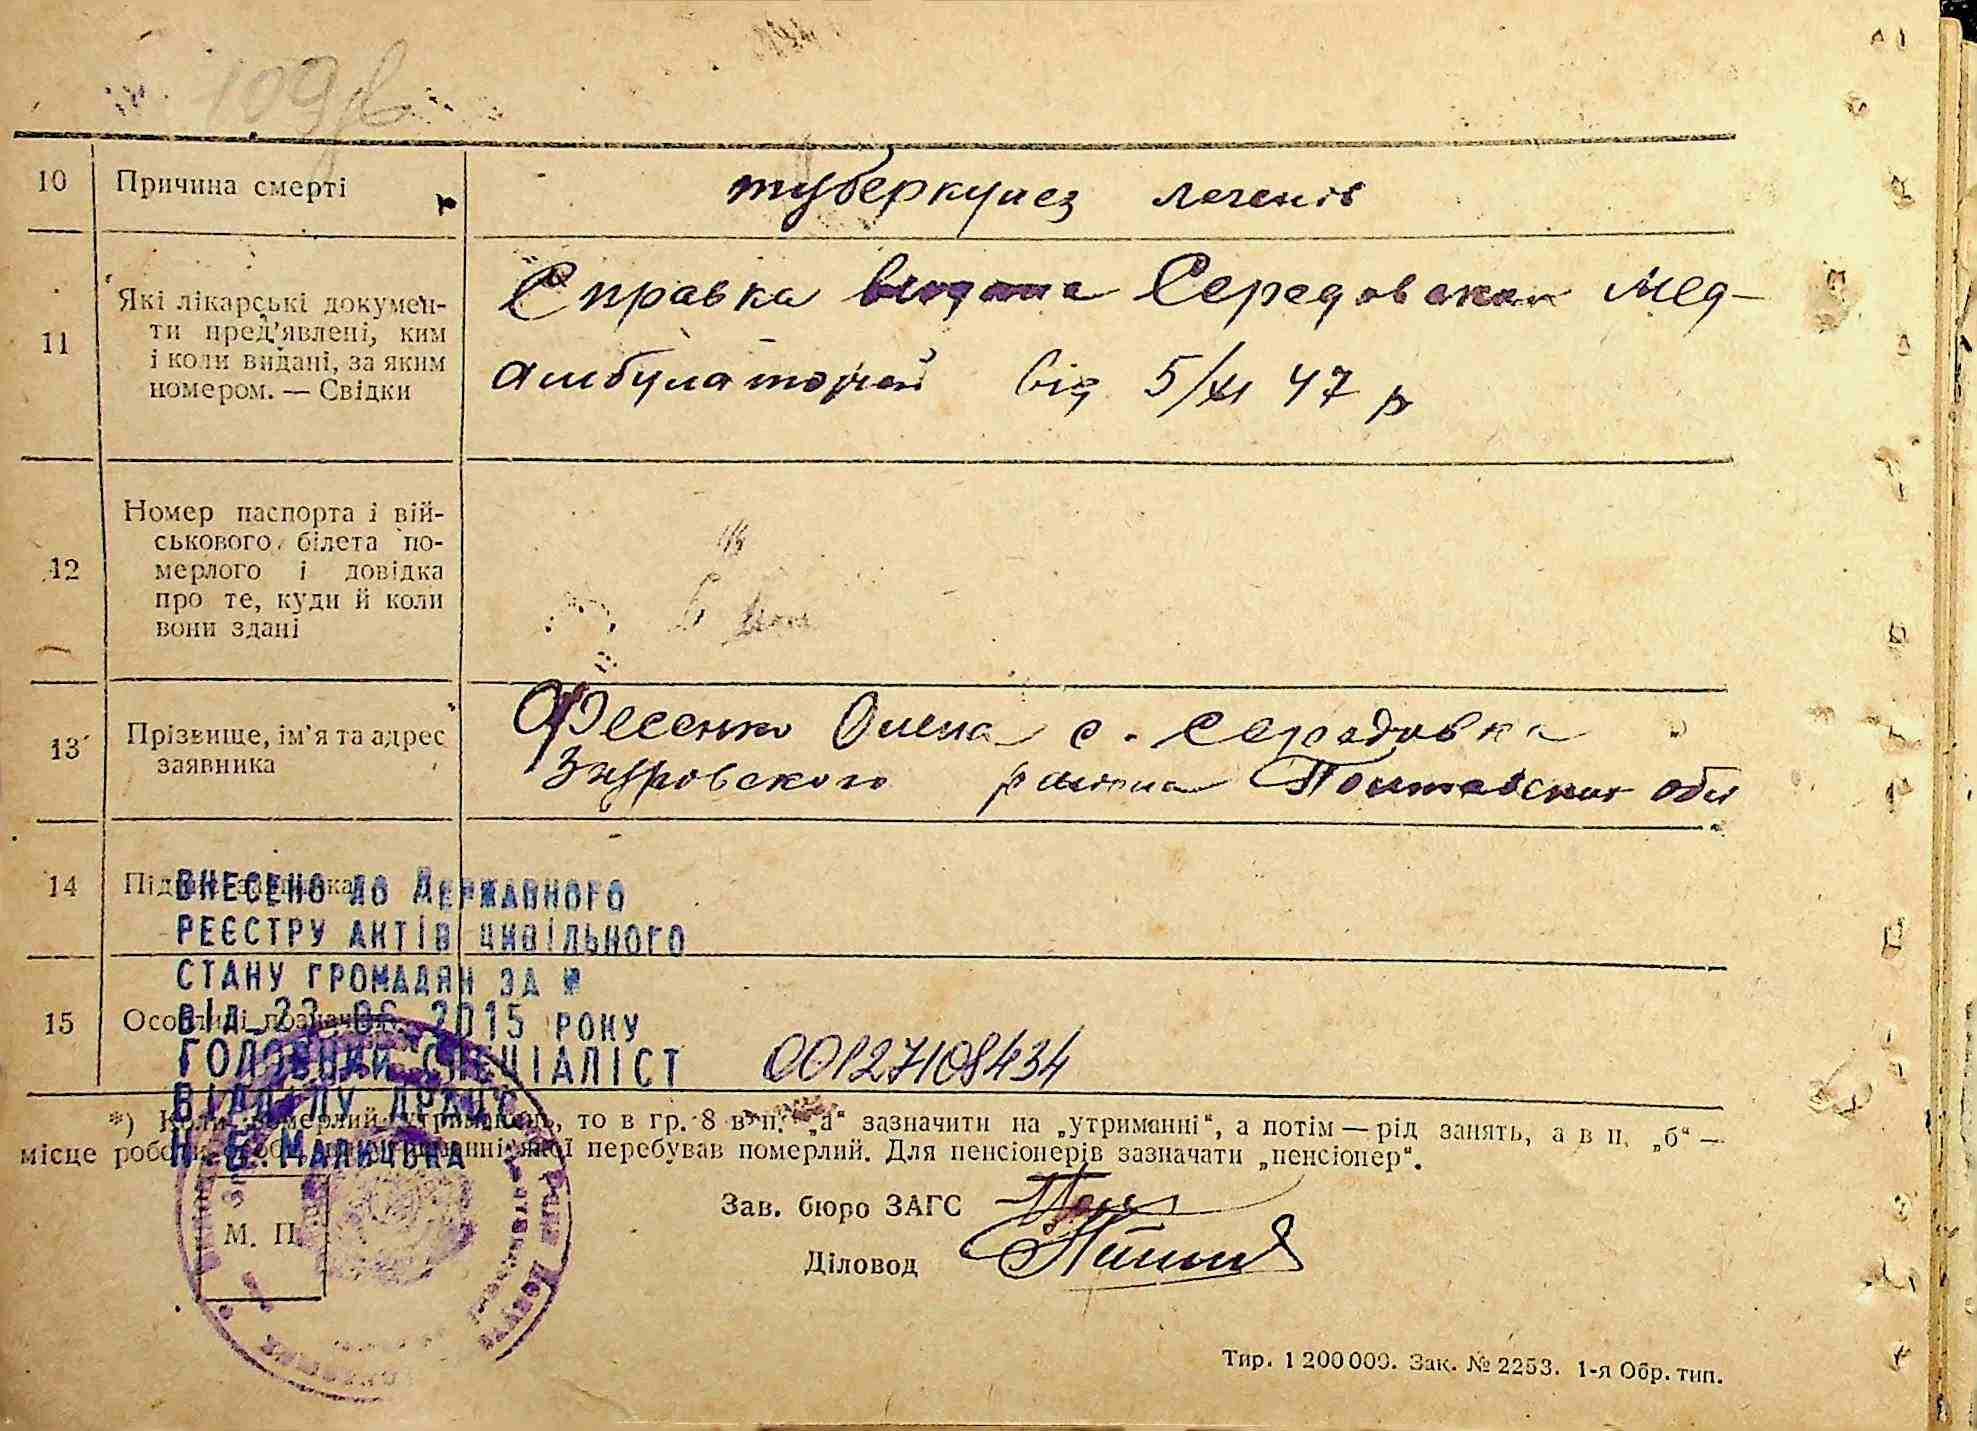 109 зв
10 Причина смерті
туберкульоз легенів
11 Які лікарські докумен-
ти пред'явлені, ким
і коли видані, за яким
номером. — Свідки
Справка видана Середовской мед-
амбулаторией від 5/XI 47 р
12 Номер паспорта і вій-
ськового білета по-
мерлого і довідка
про те, куди й коли
вони здані
13 Прізвище, ім'я та адрес
заявника
Фесенко Олена с. Середовка
Згуровского района Полтавской обл
14
ВНЕСЕНО ДО ДЕРЖАВНОГО
РЕЄСТРУ АКТІВ ЦИВІЛЬНОГО
СТАНУ ГРОМАДЯН ЗА №
15
ВІД 23 06 2015 РОКУ
ГОЛОВНИЙ СПЕЦІАЛІСТ 00127108434
ВІДДІЛУ ДРАЦС
*) Коли померлий утриманець, то в гр. 8 в п. „а“ зазначити на „утриманні“, а потім — рід занять, а в п. „б“ —
місце роботи перебував померлий. Для пенсіонерів зазначати „пенсіонер“.
М. П.
Зав. бюро ЗАГС
Діловод
Тир. 1 200 000. Зак. № 2253. 1-я Обр. тип.